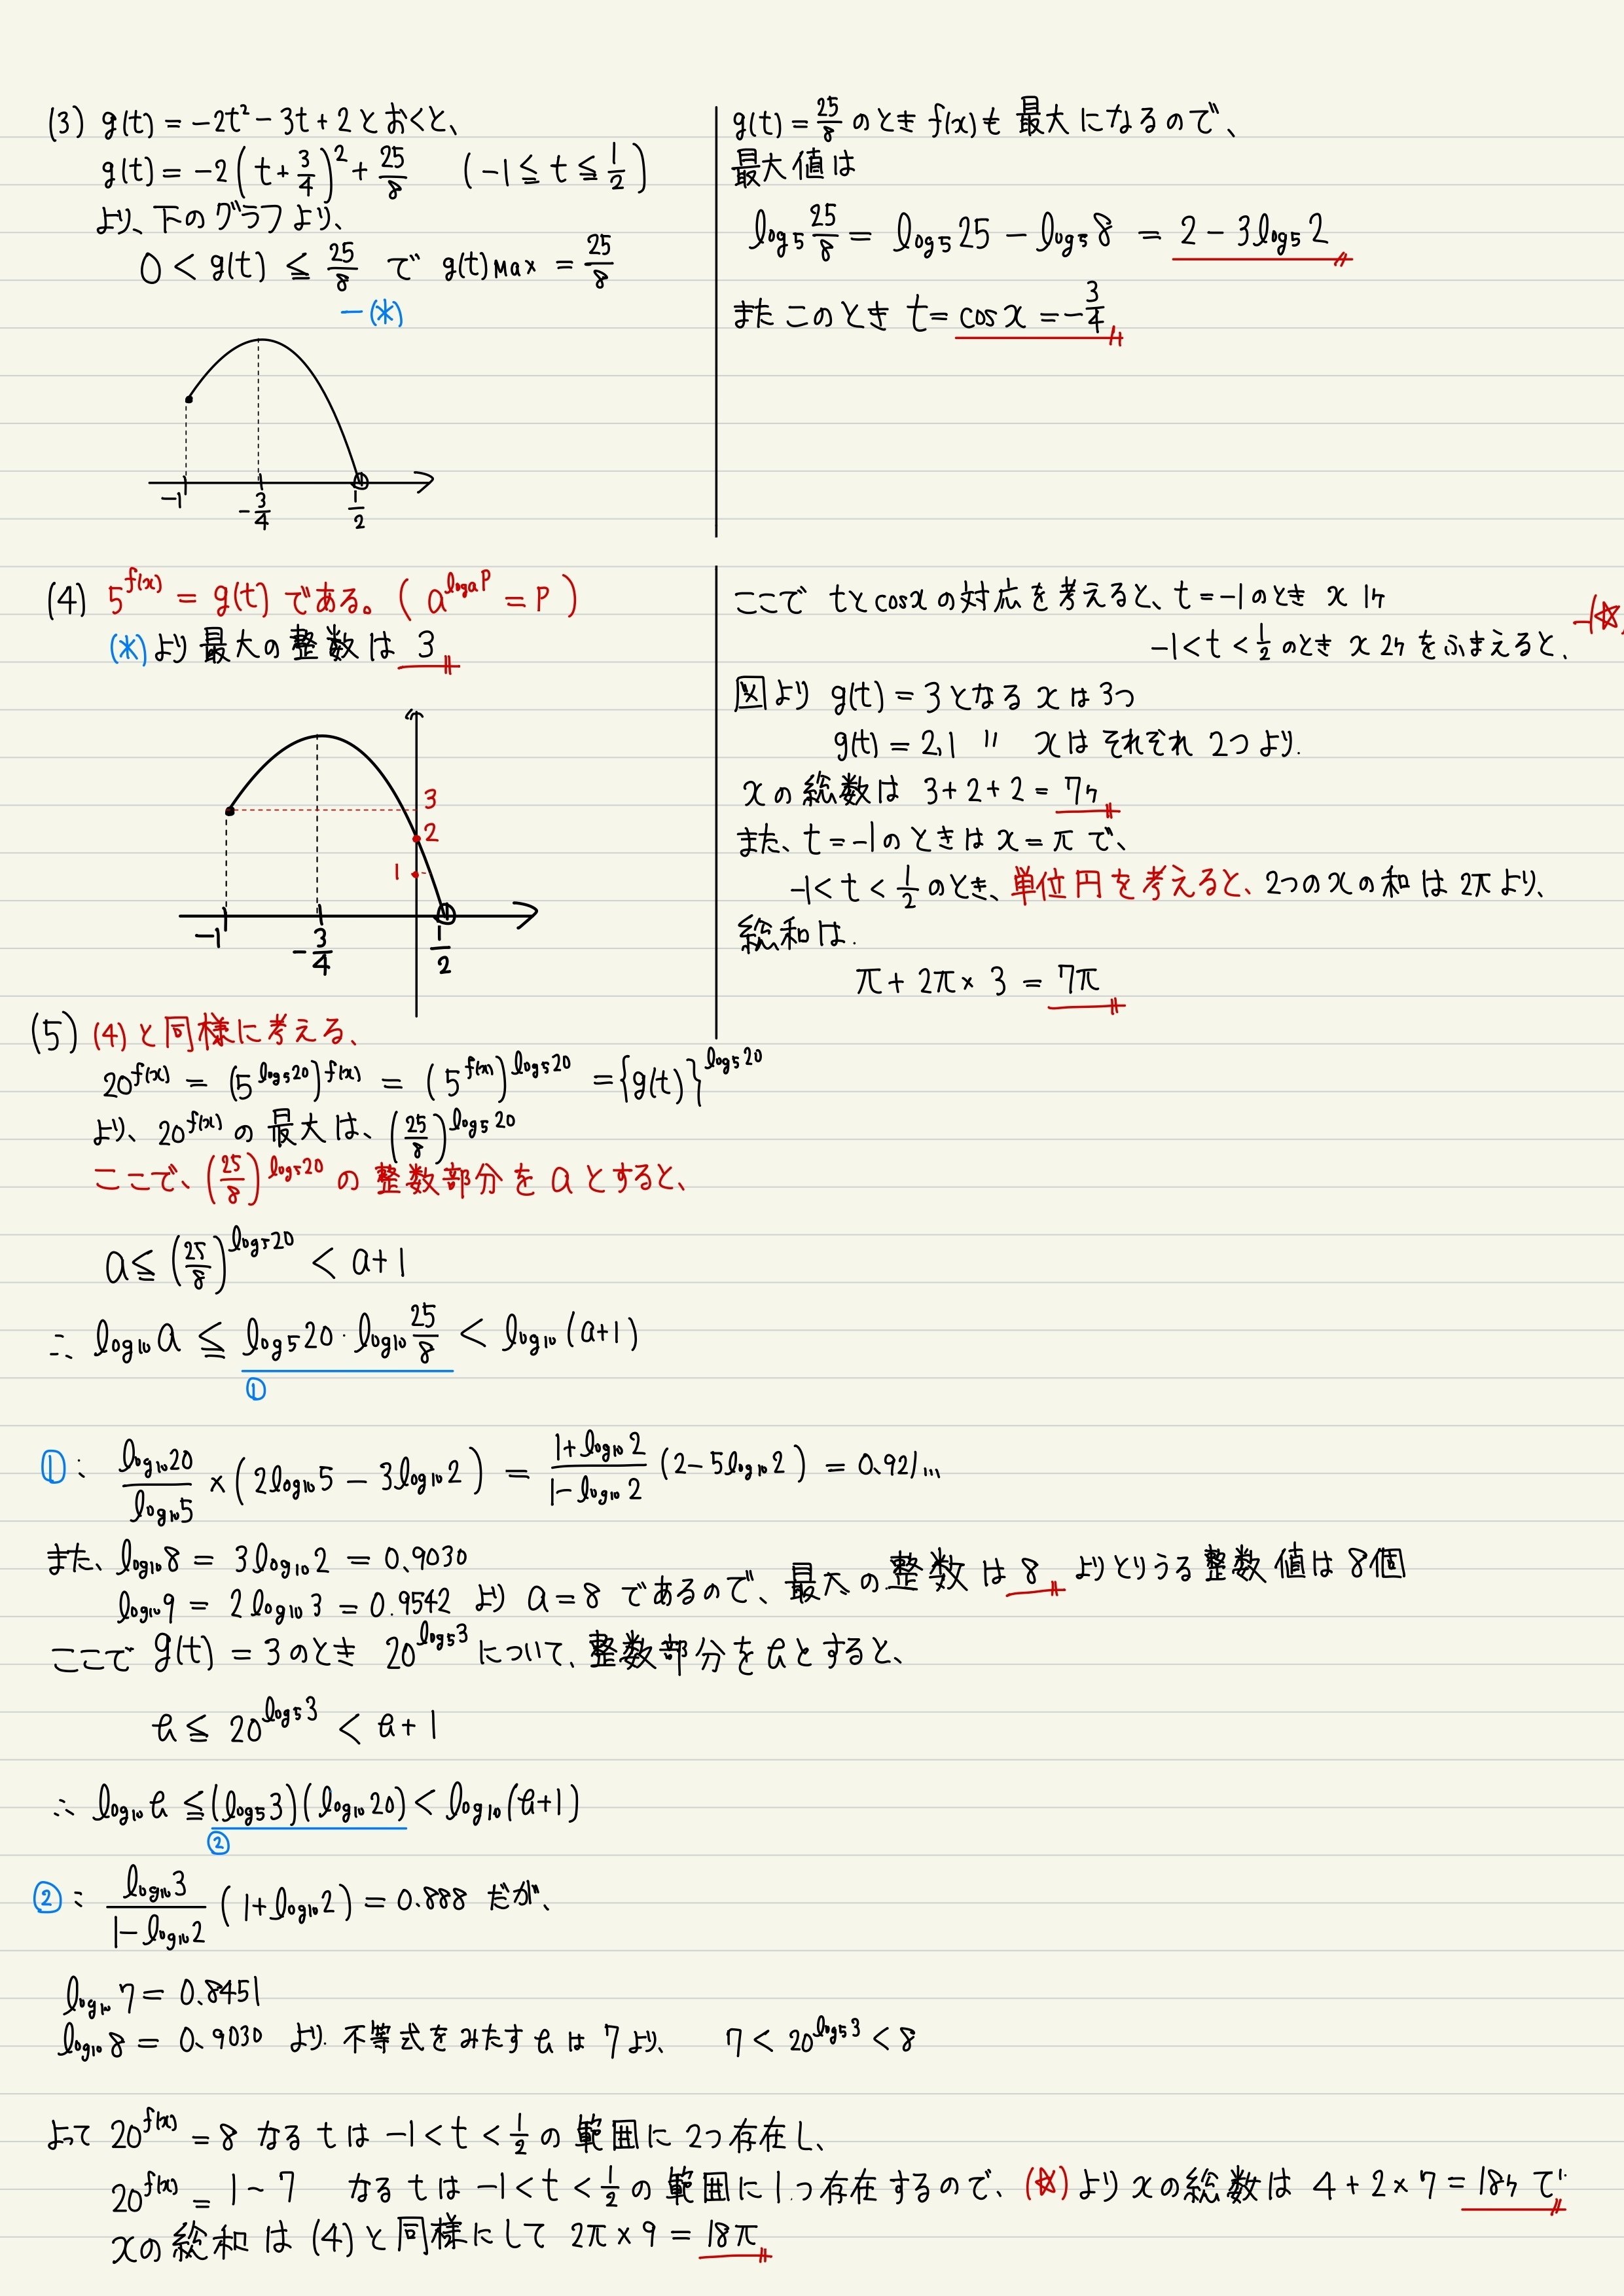 (3) g(t) = -2t² - 3t + 2 とおくと、
g(t) = -2(t + 3/4)² + 25/8 (-1 ≦ t ≦ 1/2)
より、下のグラフより、
0 < g(t) ≦ 25/8 で g(t)Max = 25/8
-(*)
-1
-3/4
1/2
g(t) = 25/8 のとき f(x)も 最大になるので、
最大値は
log₅ 25/8 = log₅25 - log₅8 = 2 - 3log₅2
またこのとき t = cosx = -3/4
(4) 5^f(x) = g(t) である。( a^logaP = P )
(*)より最大の整数は 3
3
2
1
-1
-3/4
1/2
ここで tとcosxの対応を考えると、t = -1のとき x 1ヶ
-1 < t < 1/2 のとき x 2ヶ をふまえると、
-(☆
図より g(t) = 3となる xは3つ
g(t) = 2,1 〃 xは それぞれ 2つより.
xの総数は 3+2+2 = 7ヶ
また、t = -1のときは x = π で、
-1 < t < 1/2 のとき、単位円を考えると、2つのxの和は2πより、
総和は.
π + 2π × 3 = 7π
(5) (4)と同様に考える、
20^f(x) = (5^log₅20)^f(x) = (5^f(x))^log₅20 = {g(t)}^log₅20
より、20^f(x) の最大は、(25/8)^log₅20
ここで、(25/8)^log₅20 の整数部分を aとすると、
a ≦ (25/8)^log₅20 < a+1
∴ log₁₀a ≦ log₅20・log₁₀ 25/8 < log₁₀(a+1)
①
①: log₁₀20/log₅10 × (2log₁₀5 - 3log₁₀2) = (1+log₁₀2)/(1-log₁₀2) (2-5log₁₀2) = 0.921...
また、log₁₀8 = 3log₁₀2 = 0.9030
log₁₀9 = 2log₁₀3 = 0.9542 より a = 8 であるので、最大の整数は 8 よりとりうる整数値は8個
ここで g(t) = 3のとき 20^log₅3 について、整数部分をbとすると、
b ≦ 20^log₅3 < b+1
∴ log₁₀b ≦ (log₅3)(log₁₀20) < log₁₀(b+1)
②
②: log₁₀3/(1-log₁₀2) (1+log₁₀2) = 0.888 だが、
log₁₀7 = 0.8451
log₁₀8 = 0.9030 より. 不等式をみたすbは 7より、 7 < 20^log₅3 < 8
よって 20^f(x) = 8 なる tは -1 < t < 1/2 の範囲に2つ存在し、
20^f(x) = 1~7 なる tは -1 < t < 1/2 の範囲に1つ存在するので、(☆)より xの総数は 4+2×7 = 18ヶ で
xの総和は (4)と同様にして 2π × 9 = 18π